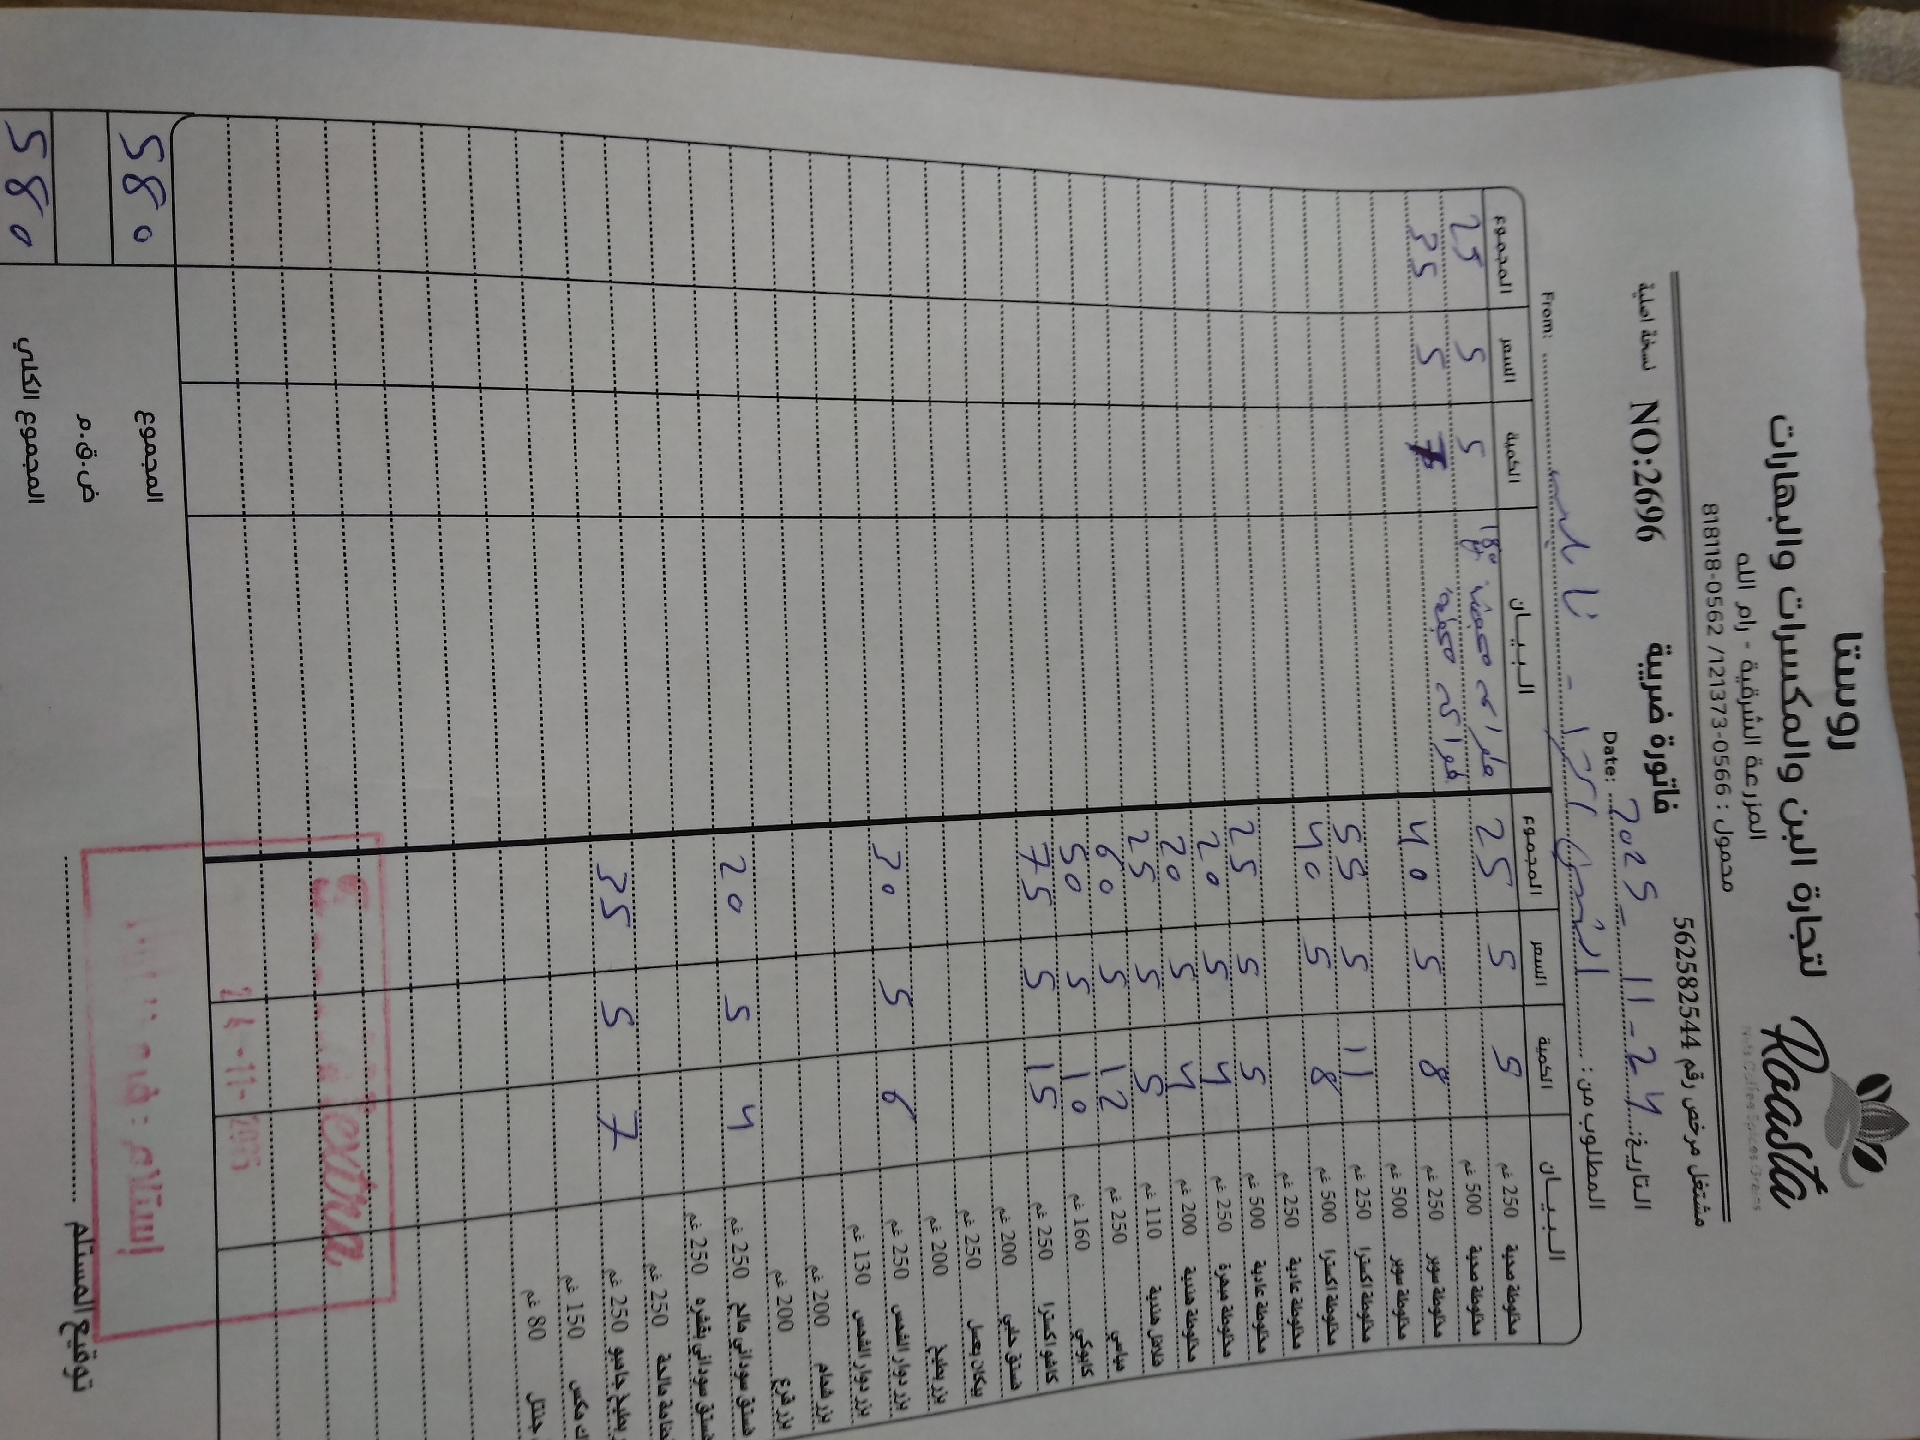 روستا
لتجارة البن والمكسرات والبهارات
المزرعة الشرقية - رام الله
محمول : 0566-121373/ 0562-818118
Roasta
Nuts Coffee Spices Grains
مشتغل مرخص رقم 562582544 فاتورة ضريبية NO:2696 نسخة اصلية
التاريخ: 2025 - 11 - 24 Date:
المطلوب من : From:
البيان الكمية السعر المجموع البيان الكمية السعر المجموع
مخلوطة صحية 250 غم 5 5 25 5 5 25
مخلوطة صحية 500 غم فواكه مجففة 7 5 35
مخلوطة سوبر 250 غم 8 5 40
مخلوطة سوبر 500 غم
مخلوطة اكسترا 250 غم 11 5 55
مخلوطة اكسترا 500 غم 8 5 40
مخلوطة عادية 250 غم
مخلوطة عادية 500 غم 5 5 25
مخلوطة مبهرة 250 غم 4 5 20
مخلوطة هندية 200 غم 4 5 20
فلافل هندية 110 غم 5 5 25
ميامي 250 غم 12 5 60
كابوكي 160 غم 10 5 50
كاشو اكسترا 250 غم 15 5 75
فستق حلبي 200 غم
بيكان بعسل 250 غم
بزر بطيخ 200 غم
بزر دوار الشمس 250 غم 6 5 30
بزر دوار الشمس 130 غم
بزر شمام 200 غم
بزر قرع 200 غم
فستق سوداني مالح 250 غم 4 5 20
فستق سوداني بقشره 250 غم
مالحة 250 غم
بطيخ جامبو 250 غم 7 5 35
مكس 150 غم
جنتل 80 غم
extra
24-11-2025
إستلام :
المجموع 580
ض.ق.م
المجموع الكلي 580
توقيع المستلم